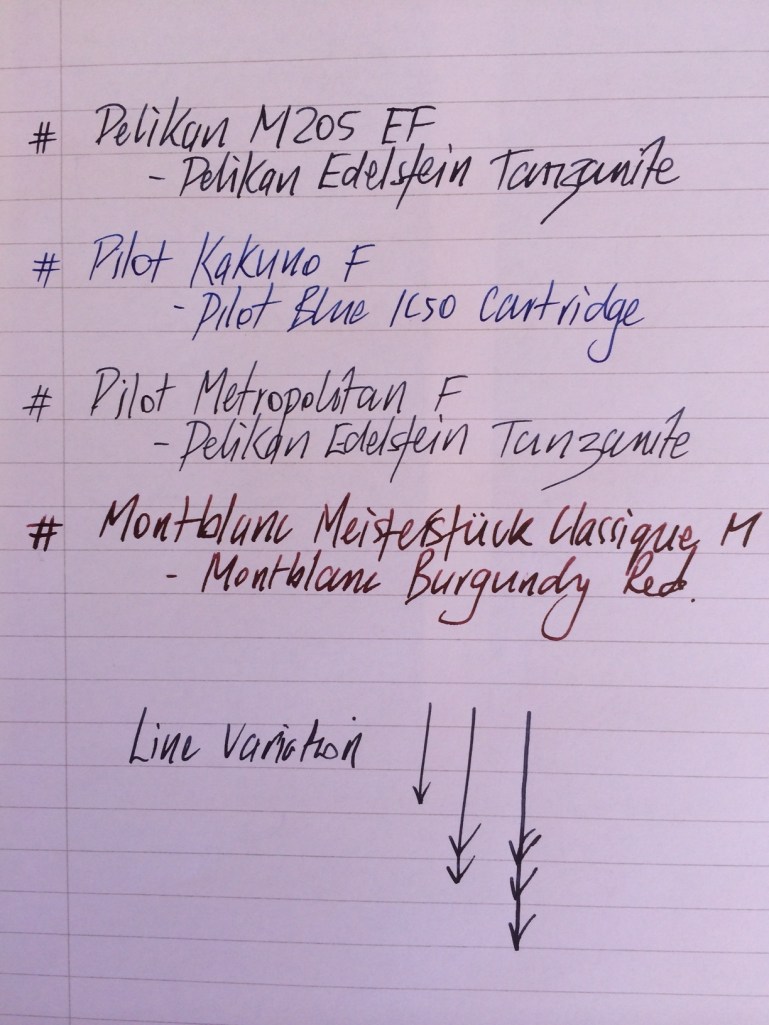 # Pelikan M205 EF
- Pelikan Edelstein Tanzanite
# Pilot Kakuno F
- Pilot Blue IC50 Cartridge
# Pilot Metropolitan F
- Pelikan Edelstein Tanzanite
# Montblanc Meisterstück Classique M
- Montblanc Burgundy Red.
Line Variation